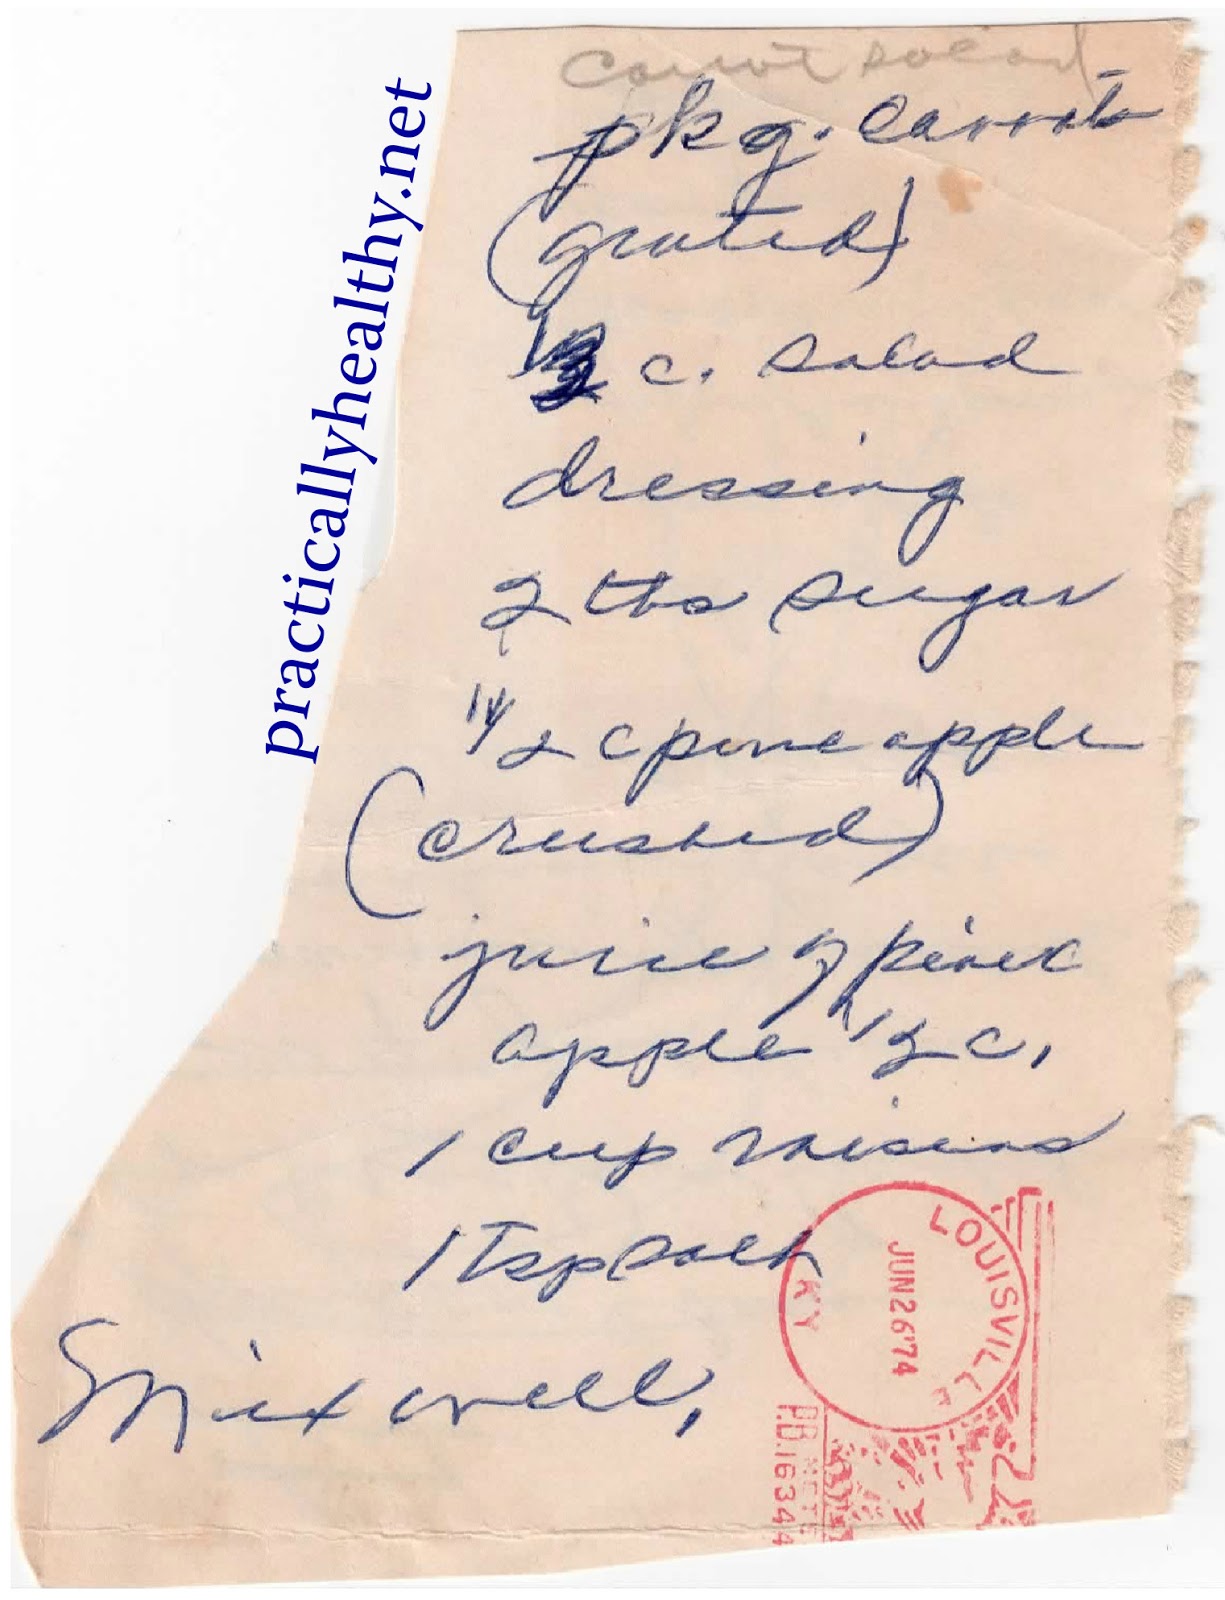 carrot salad
pkg. carrots
(grated)
c. salad
dressing
2 tbs sugar
1/2 c pineapple
(crushed)
juice of pine
apple 1/2 c.
1 cup raisins
1 Tsp salt
Mix well.
practicallyhealthy.net
LOUISVILLE
KY
JUN 26 '74
P.B. METER
P.O. 16344